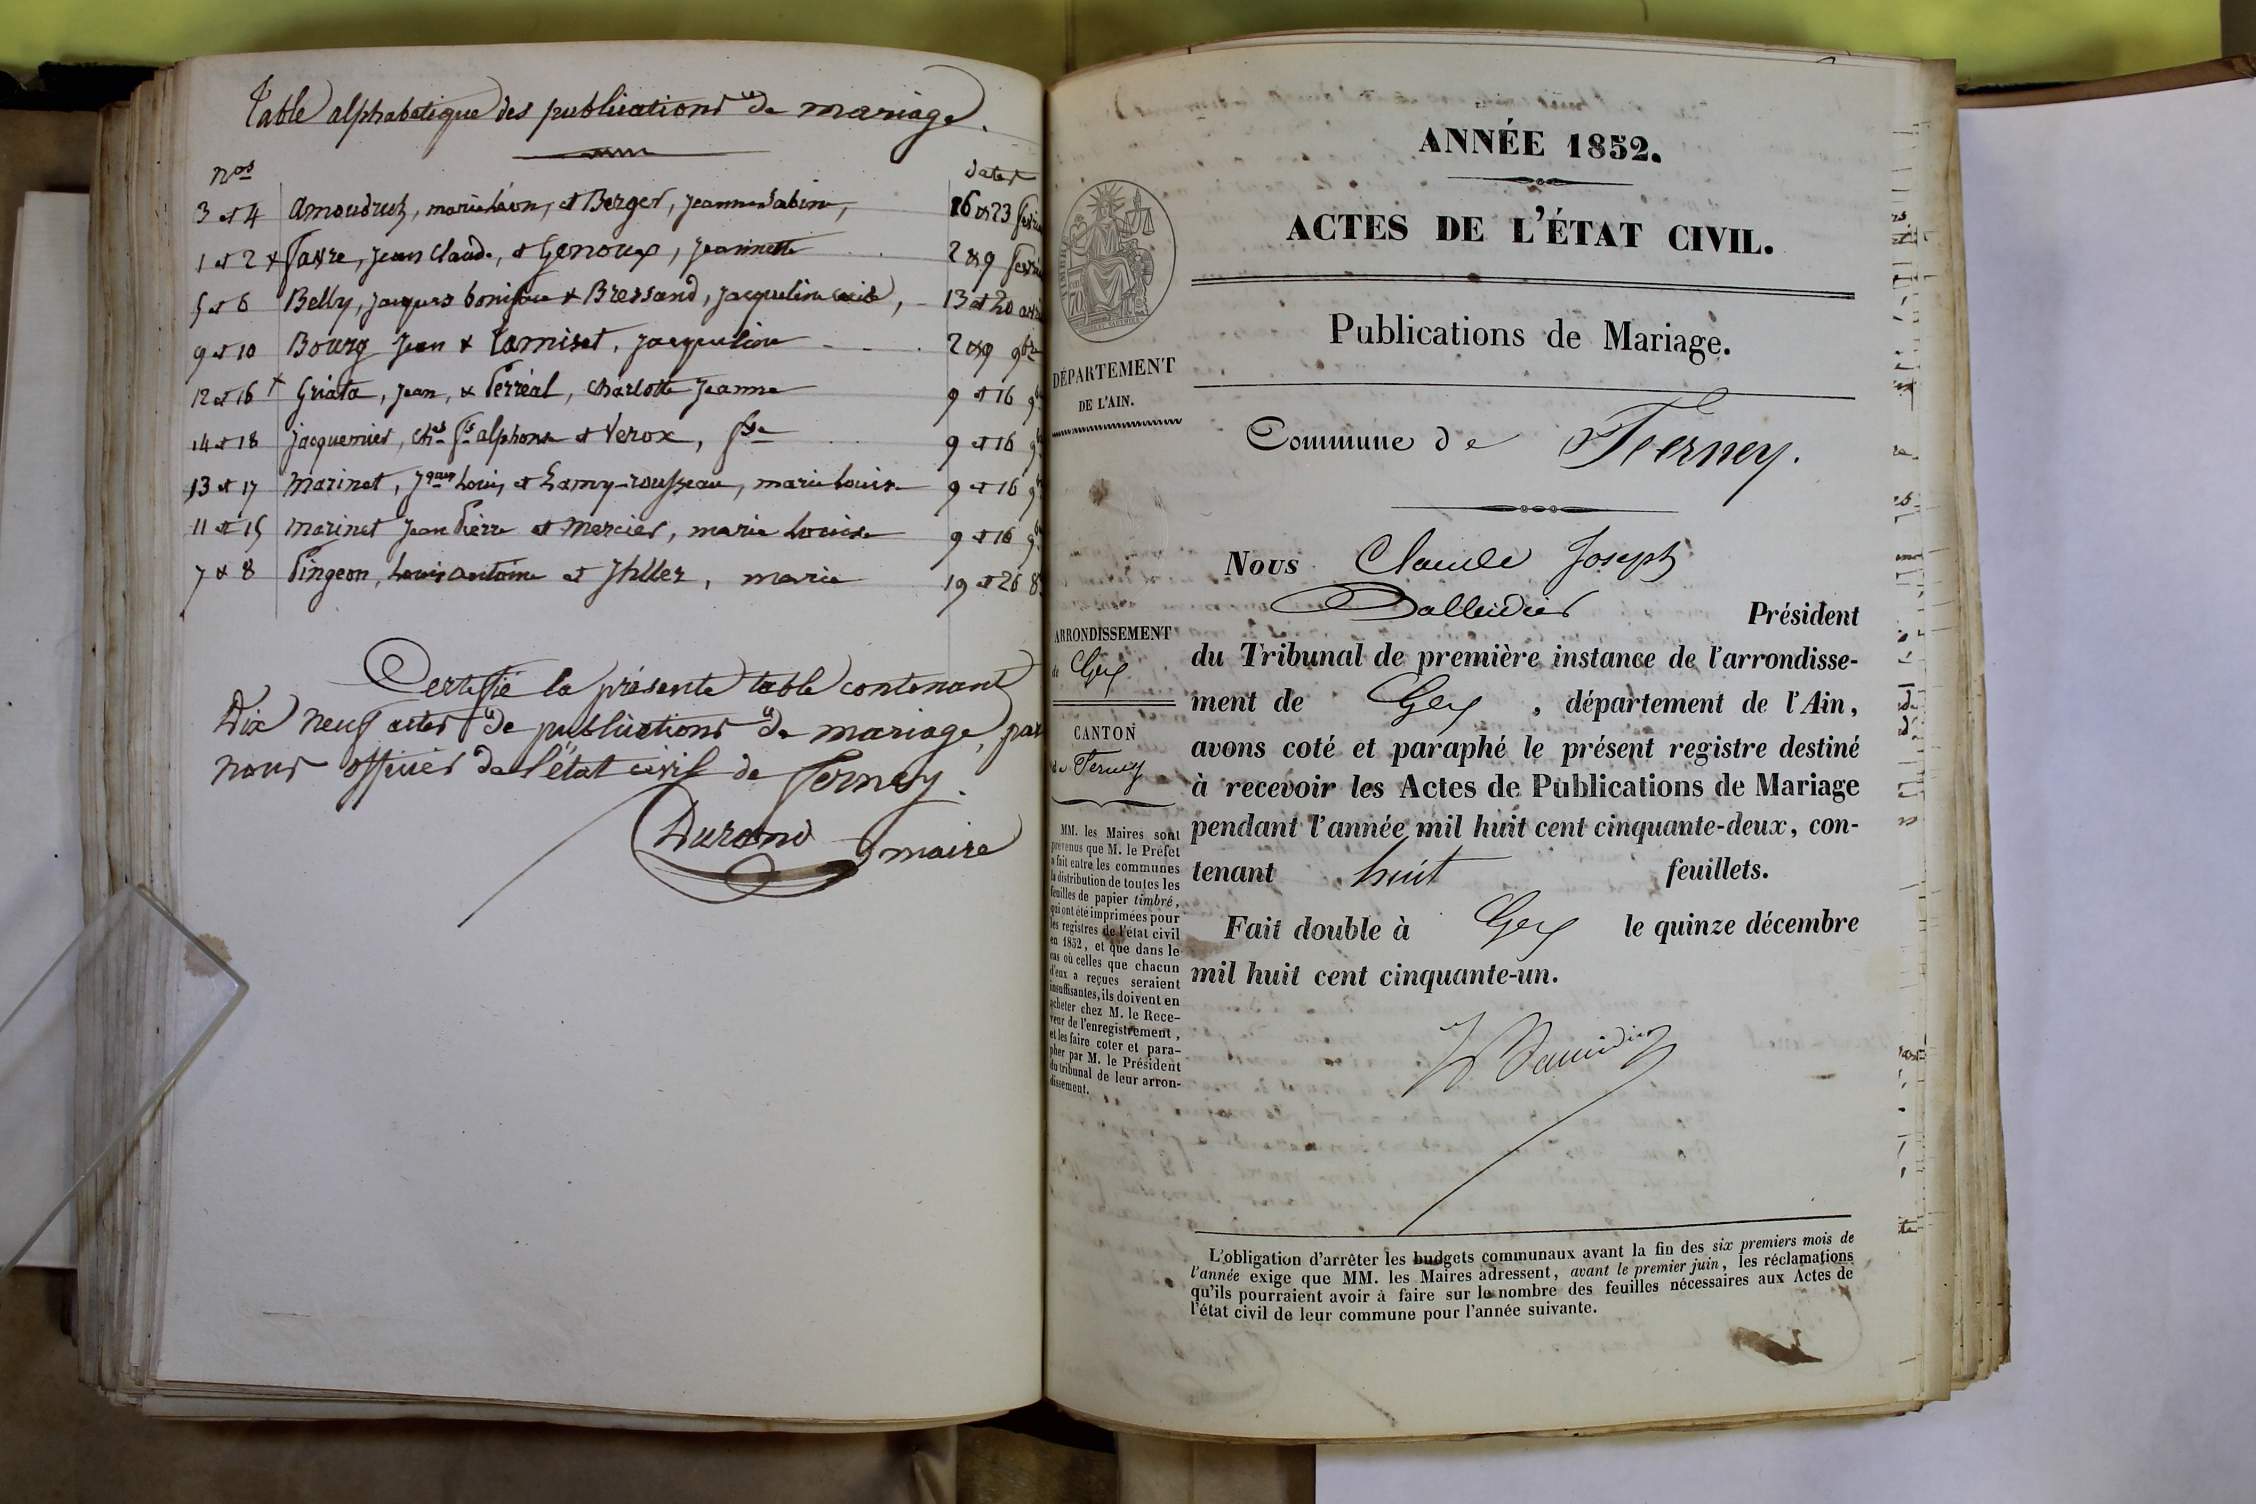 Table alphabétique des publications de mariage.
nos dates
3 et 4 Amoudruz, marie Léon, et Berger, Jeanne Sabine, 16 et 23
1 et 2 x Favre, Jean Claude, et Genoux, Jeannette 2 & 9
5 et 6 Belly, Jacques boniface & Bressand, Jacqueline 13 et 20
9 et 10 Bourg Jean & Tarniset, Jacqueline 2 & 9 9bre
12 et 16 x Griata, Jean, & Perréal, Charlotte Jeanne 9 et 16
14 et 18 Jacquemier, Chs Fs alphonse et Verox, fse 9 et 16
13 et 17 Marinet, Louis, et Lamy-rousseau, marie Louise 9 et 16
11 et 15 Marinet Jean Pierre et Mercier, marie Louise 9 et 16
7 & 8 Pingeon, Louis antoine et marie 19 et 26
Certifié la présente table contenant
Dix neuf actes de publications de mariage, par
nous officier de l'état civil de Ferney.
Durand maire
ANNÉE 1852.
ACTES DE L'ÉTAT CIVIL.
Publications de Mariage.
DÉPARTEMENT
DE L'AIN.
Commune de Ferney.
Nous Claude Joseph
Balleidier Président
du Tribunal de première instance de l'arrondisse-
ment de Gex, département de l'Ain,
avons coté et paraphé le présent registre destiné
à recevoir les Actes de Publications de Mariage
pendant l'année mil huit cent cinquante-deux, con-
tenant huit feuillets.
Fait double à Gex le quinze décembre
mil huit cent cinquante-un.
ARRONDISSEMENT
de Gex
CANTON
de Ferney
MM. les Maires sont
prévenus que M. le Préfet
a fait entre les communes
la distribution de toutes les
feuilles de papier timbré,
qui ont été imprimées pour
les registres de l'état civil
en 1852, et que dans le
cas où celles que chacun
d'eux a reçues seraient
insuffisantes, ils doivent en
acheter chez M. le Rece-
veur de l'enregistrement,
et les faire coter et para-
pher par M. le Président
du tribunal de leur arron-
dissement.
L'obligation d'arrêter les budgets communaux avant la fin des six premiers mois de
l'année exige que MM. les Maires adressent, avant le premier juin, les réclamations
qu'ils pourraient avoir à faire sur le nombre des feuilles nécessaires aux Actes de
l'état civil de leur commune pour l'année suivante.